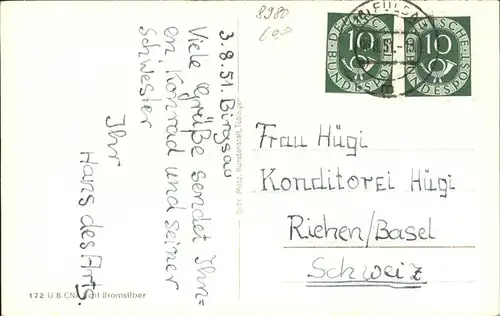 8980
3.8.51. Birgsau
Viele Grüße sendet Ihn=
en Konrad und seiner
Schwester
Ihr
Hans des Arts.
172 U.B CN. Echt Bromsilber
Gebr. Metz, Kunstanstalt, Tübingen
DEUTSCHE
BUNDESPOST
10
DEUTSCHE
BUNDESPOST
10
Frau Hügi
Konditorei Hügi
Riehen/Basel
Schweiz